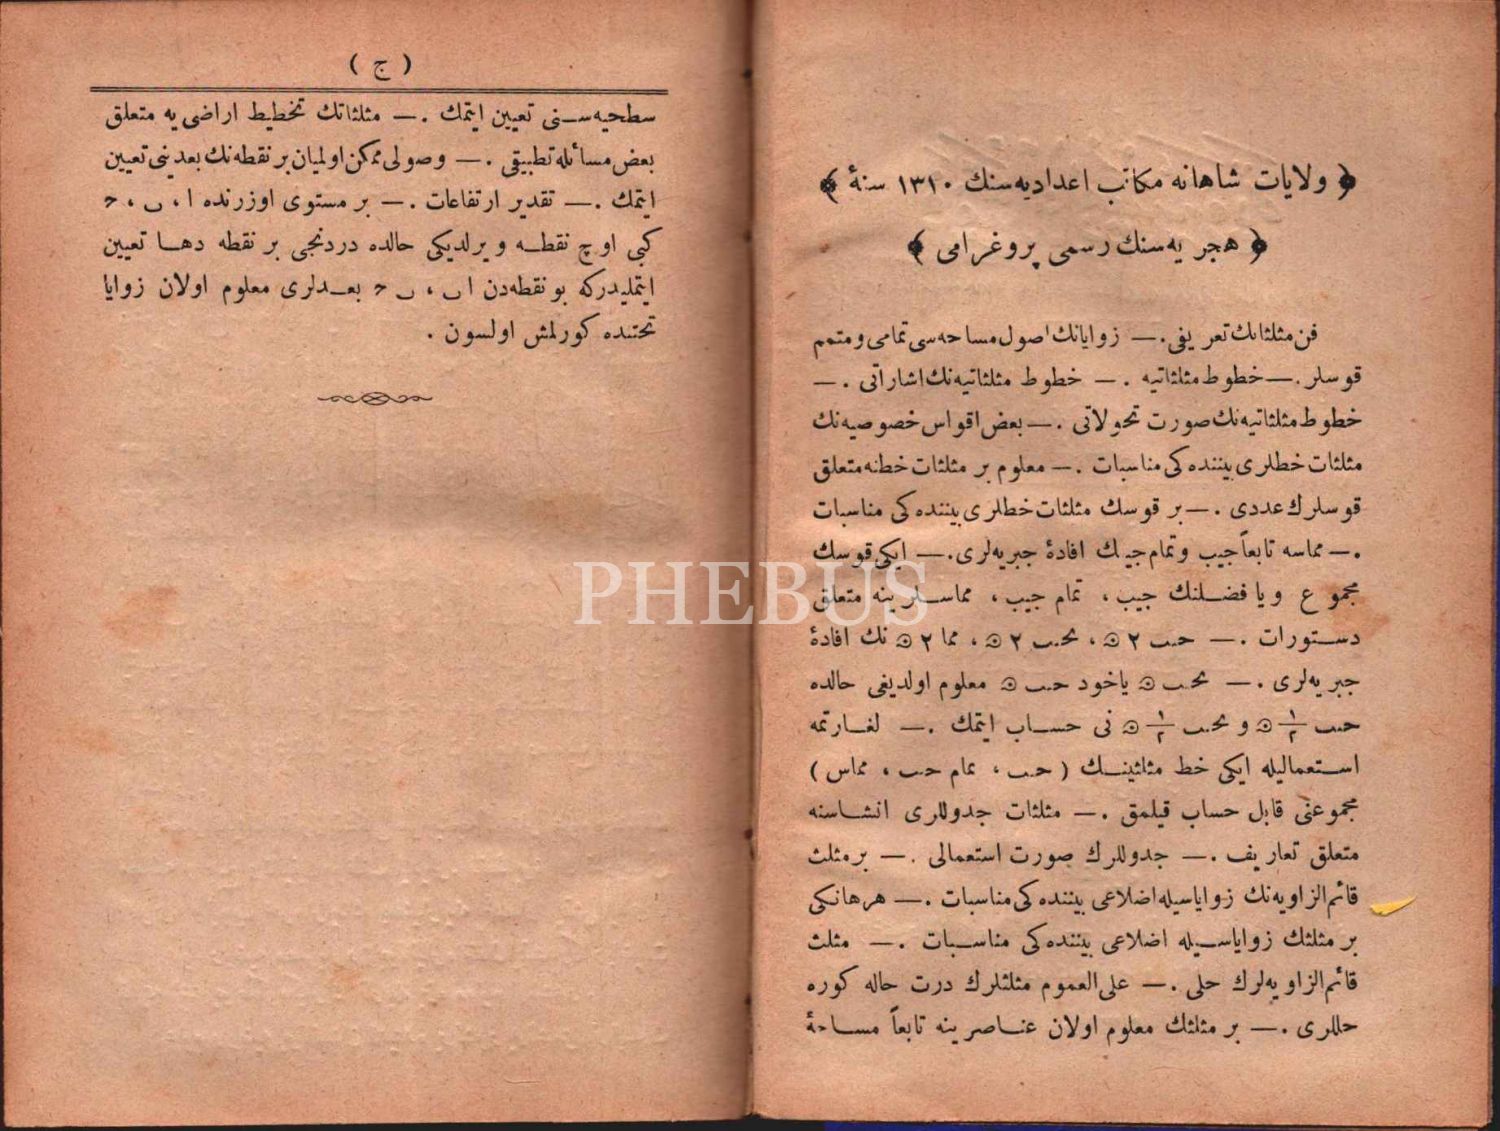 ﴿ ولايات شاهانه مكاتب اعداديه‌سنك ١٣١٠ سنهٔ ﴾
﴿ هجريه‌سنك رسمى پروغرامى ﴾
فن مثلثاتك تعريفى .— زوايانك اصول مساحه‌سى تمامى و متمم
قوسلر .— خطوط مثلثاتيه .— خطوط مثلثاتيه‌نك اشاراتى .—
خطوط مثلثاتيه‌نك صورت تحولاتى .— بعض اقواس خصوصيه‌نك
مثلثات خطلرى بيننده‌كى مناسبات .— معلوم بر مثلثات خطنه متعلق
قوسلرك عددى .— بر قوسك مثلثات خطلرى بيننده‌كى مناسبات
.— مماسه تابعاً جيب و تمام جيبك افادهٔ جبريه‌لرى .— ايكى قوسك
مجموع ويا فضلنك جيب ، تمام جيب ، مماسلرينه متعلق
دستورات .— حب ٢ ، تحب ٢ ، مما ٢ نك افادهٔ
جبريه‌لرى .— تحب ياخود حب معلوم اولديغى حالده
حب ١/٢ و تحب ١/٢ نى حساب ايتمك .— لغارتمه
استعماليله ايكى خط مثلثينك ( حب ، تمام حب ، مماس )
مجموعنى قابل حساب قيلمق .— مثلثات جدوللرى انشاسنه
متعلق تعاريف .— جدوللرك صورت استعمالى .— بر مثلث
قائم‌الزاويه‌نك زواياسيله اضلاعى بيننده‌كى مناسبات .— هرهانكى
بر مثلثك زواياسيله اضلاعى بيننده‌كى مناسبات .— مثلث
قائم‌الزاويه‌لرك حلى .— على‌العموم مثلثلرك درت حاله كوره
حللرى .— بر مثلثك معلوم اولان عناصرينه تابعاً مساحهٔ
( ج )
سطحيه‌سنى تعيين ايتمك .— مثلثاتك تخطيط اراضى يه متعلق
بعض مسائله تطبيقى .— وصولى ممكن اولميان بر نقطه‌نك بعدينى تعيين
ايتمك .— تقدير ارتفاعات .— بر مستوى اوزرنده ا ، ب ، ح
كبى اوچ نقطه ويرلديكى حالده دردنجى بر نقطه دها تعيين
ايتمليدركه بو نقطه‌دن اب ، ب ح بعدلرى معلوم اولان زوايا
تحتنده كورلمش اولسون .
PHEBUS